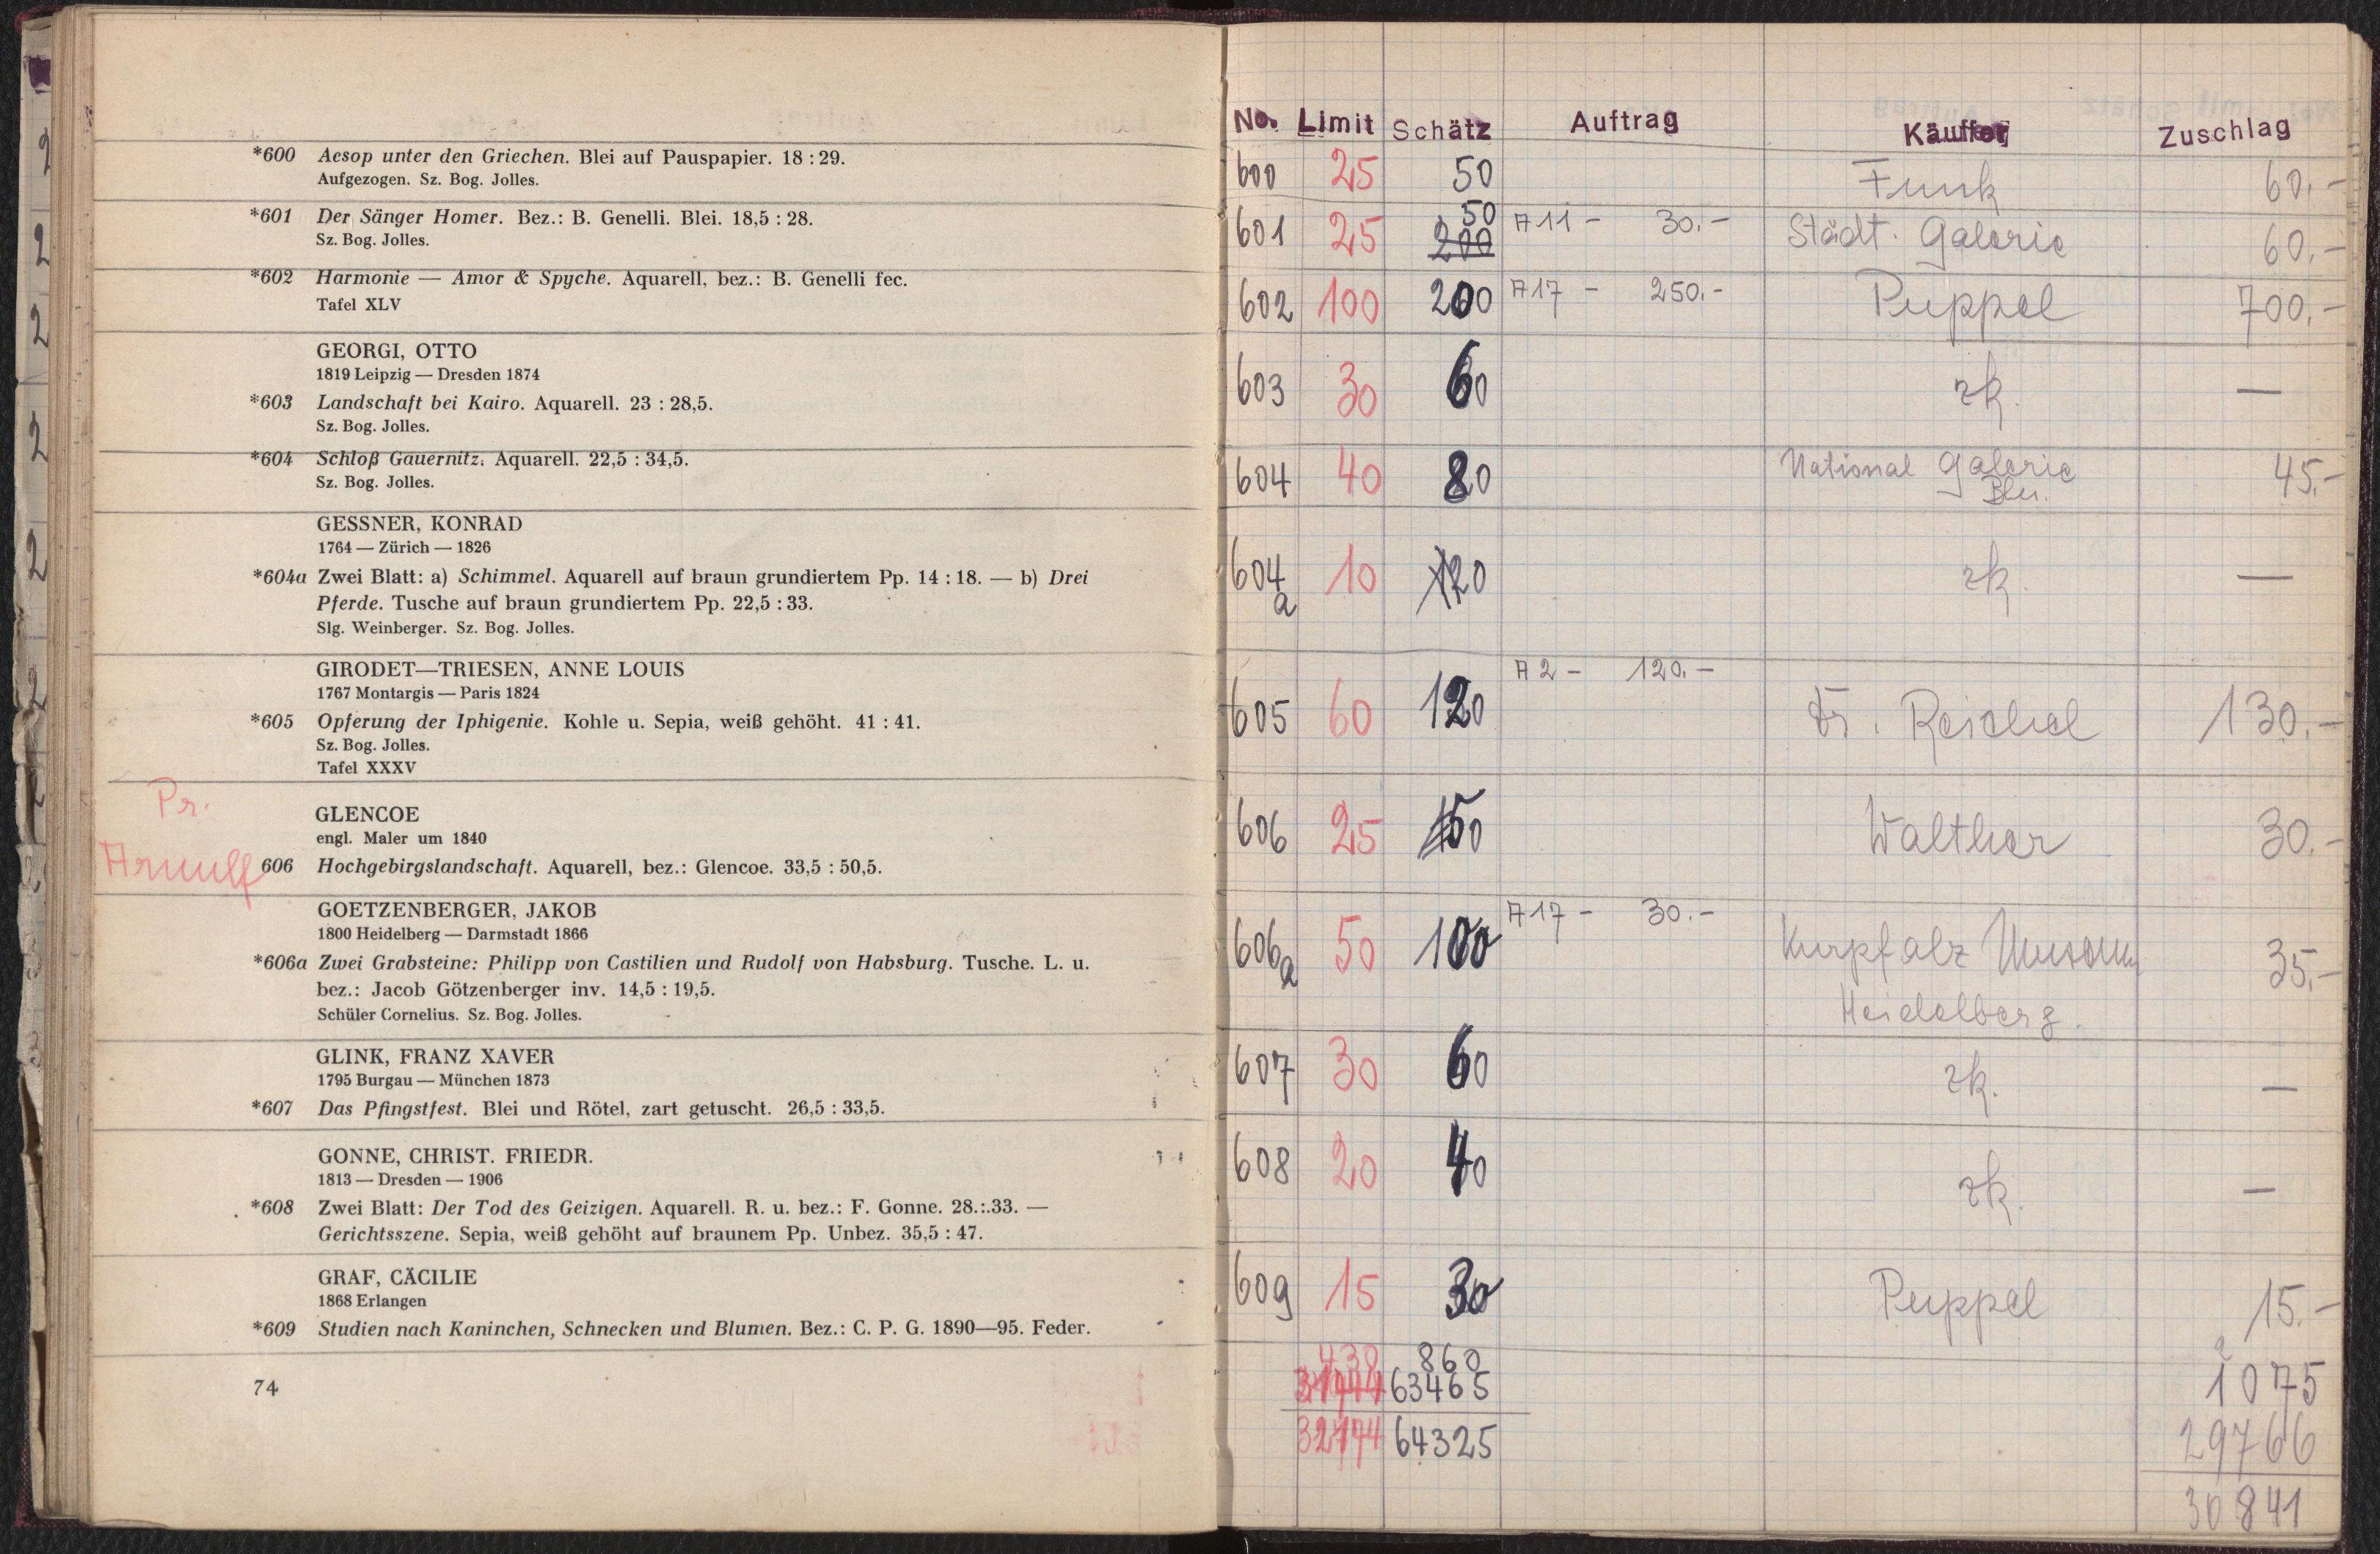 *600 Aesop unter den Griechen. Blei auf Pauspapier. 18 : 29.
Aufgezogen. Sz. Bog. Jolles.
*601 Der Sänger Homer. Bez.: B. Genelli. Blei. 18,5 : 28.
Sz. Bog. Jolles.
*602 Harmonie — Amor & Spyche. Aquarell, bez.: B. Genelli fec.
Tafel XLV
GEORGI, OTTO
1819 Leipzig — Dresden 1874
*603 Landschaft bei Kairo. Aquarell. 23 : 28,5.
Sz. Bog. Jolles.
*604 Schloß Gauernitz. Aquarell. 22,5 : 34,5.
Sz. Bog. Jolles.
GESSNER, KONRAD
1764 — Zürich — 1826
*604a Zwei Blatt: a) Schimmel. Aquarell auf braun grundiertem Pp. 14 : 18. — b) Drei
Pferde. Tusche auf braun grundiertem Pp. 22,5 : 33.
Slg. Weinberger. Sz. Bog. Jolles.
GIRODET—TRIESEN, ANNE LOUIS
1767 Montargis — Paris 1824
*605 Opferung der Iphigenie. Kohle u. Sepia, weiß gehöht. 41 : 41.
Sz. Bog. Jolles.
Tafel XXXV
Pr.
Arnulf
GLENCOE
engl. Maler um 1840
606 Hochgebirgslandschaft. Aquarell, bez.: Glencoe. 33,5 : 50,5.
GOETZENBERGER, JAKOB
1800 Heidelberg — Darmstadt 1866
*606a Zwei Grabsteine: Philipp von Castilien und Rudolf von Habsburg. Tusche. L. u.
bez.: Jacob Götzenberger inv. 14,5 : 19,5.
Schüler Cornelius. Sz. Bog. Jolles.
GLINK, FRANZ XAVER
1795 Burgau — München 1873
*607 Das Pfingstfest. Blei und Rötel, zart getuscht. 26,5 : 33,5.
GONNE, CHRIST. FRIEDR.
1813 — Dresden — 1906
*608 Zwei Blatt: Der Tod des Geizigen. Aquarell. R. u. bez.: F. Gonne. 28.:.33. —
Gerichtsszene. Sepia, weiß gehöht auf braunem Pp. Unbez. 35,5 : 47.
GRAF, CÄCILIE
1868 Erlangen
*609 Studien nach Kaninchen, Schnecken und Blumen. Bez.: C. P. G. 1890—95. Feder.
74
No. Limit Schätz Auftrag Käuffer Zuschlag
600 25 50 Funk 60.-
50
601 25 200 A11 - 30.- Städt. Galerie 60.-
602 100 200 A17 - 250.- Puppel 700.-
603 30 60 zk. —
604 40 80 National Galerie 45.-
604a 10 20 zk. —
A2 - 120.-
605 60 120 Dr. Reichel 130.-
606 25 50 Walther 30.-
A17 - 30.-
606a 50 100 Kurpfalz Museum 35.-
Heidelberg.
607 30 60 zk. —
608 20 40 zk. —
609 15 30 Puppel 15.-
430 860 1075
63465 29766
64325 30841